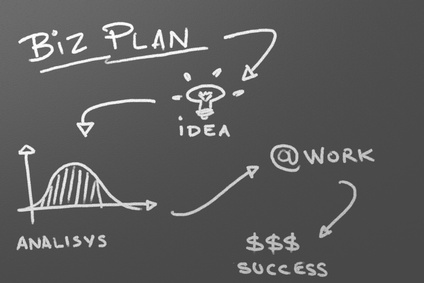 BIZ PLAN
IDEA
ANALISYS
@ WORK
$$$
SUCCESS